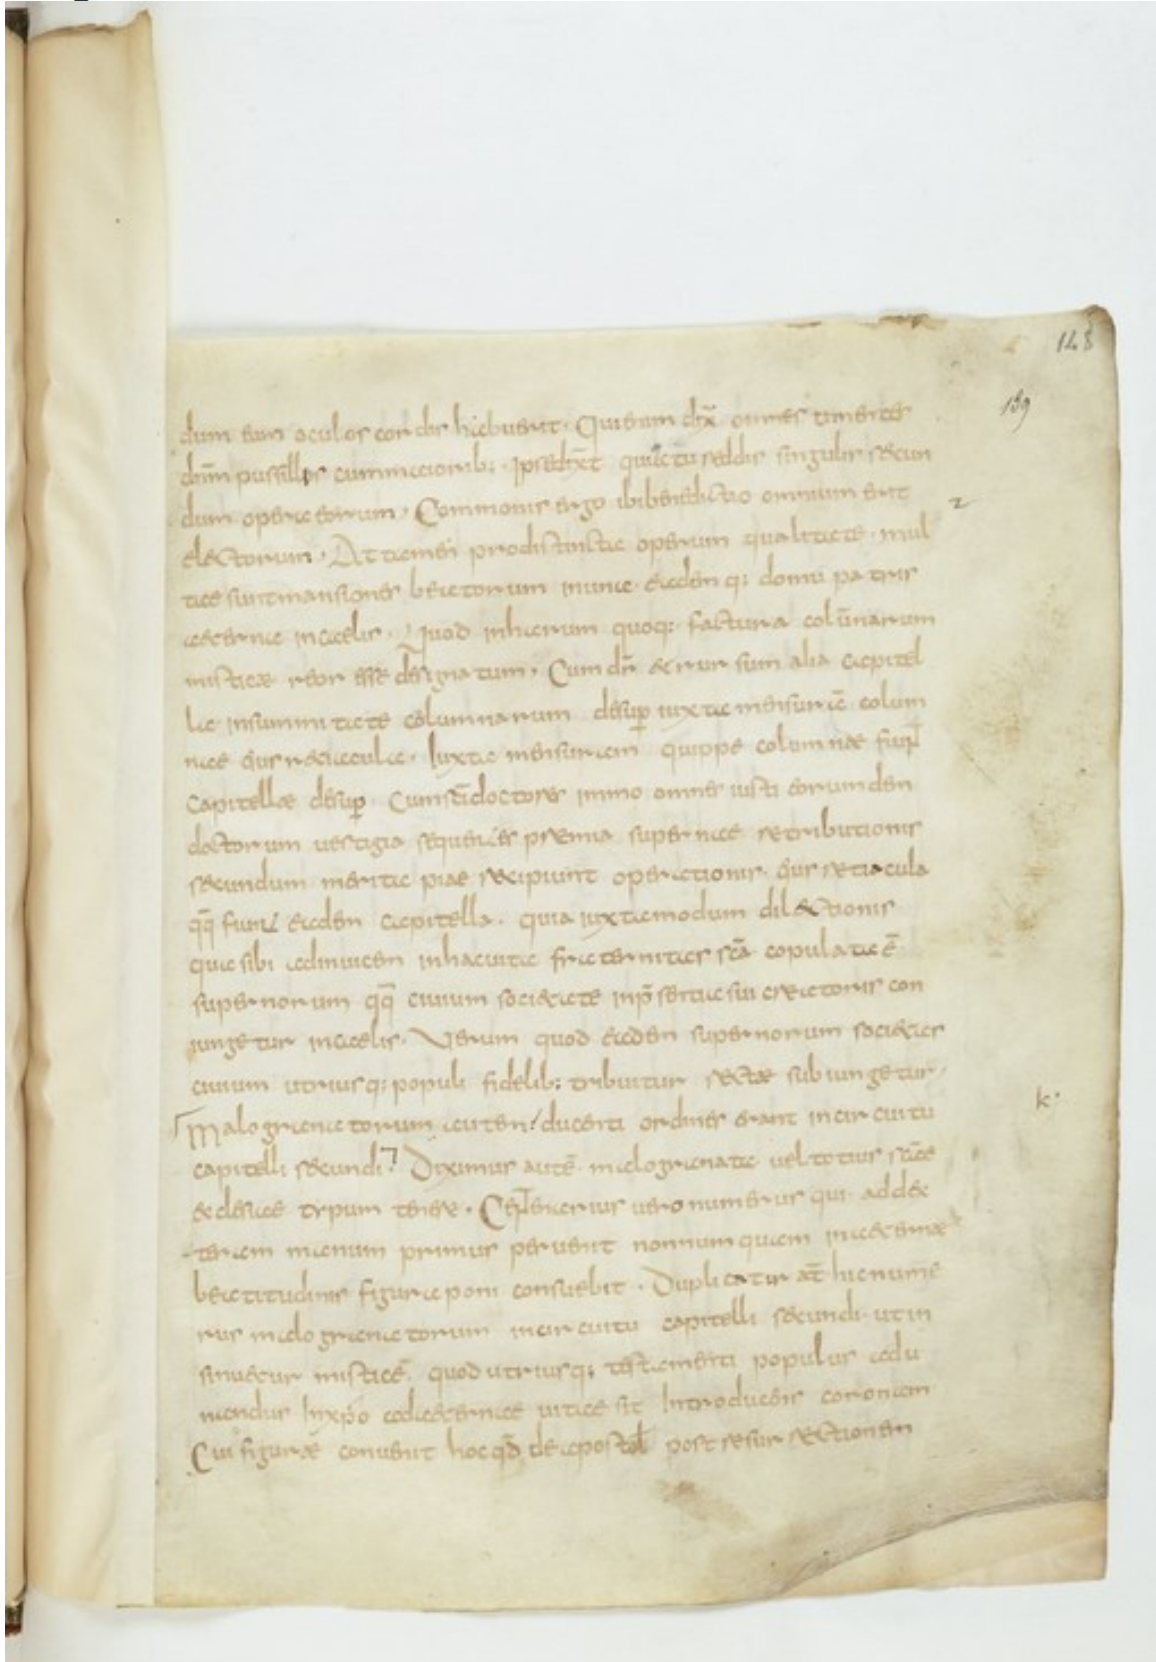 148
139
dum eum oculos cordis habuerit. Qui enim dix̄ omnes timentes
dn̄m pusillos cum maiorib; . Ipse dix̄t quia tu reddis singulis secun
dum opera eorum. Commonis ergo ibi benedictio omnium erit
electorum. At tamen pro distinctia operum qualitate. mul
tae sunt mansiones beatorum in una eadem q; domu patris
aeterna in caelis. Quod in hierum quoq; factura colūnarum
misticae reor esse designatum. Cum dr̄ et rursum alia capitel
la in summitate columnarum desup̄ iuxta mensurā colum
nae c̄tus retiacula. Iuxta mensuram quippe columnae
Capitellae desup̄. Cum sc̄i doctores immo omnes iusti eorum dem
doctorum vestigia sequentes premia supernae retributionis
secundum merita piae recipiunt operationis.  retiacula
qq̄ eadem capitella. quia iuxta modum dilectionis
quae sibi ad inuicem in hac uita fraternitas sc̄a copulata ē.
supernorum qq̄ ciuium societate in p̄sentia sui creatoris con
iungetur in caelis. Verum quod eadem supernorum societas
ciuium utriusq; populi fidelib; tribuitur recte subiungetur.
Malogranatorum autem ducenti ordines erant in circuitu
capitelli secundi. Diximus autē. malogranata vel totius sc̄ae
ecclesiae typum tenere. Centenarius uero numerus qui ad dex
teram manum primus peruenit non numquam in aeternae
beatitudinis figura poni consuebit. Duplicatur at̄ hic nume
rus malogranatorum in circuitu capitelli secundi. ut in
sinuetur mistice. quod utriusq; testamenti populus adu
nandus in xpo ad aeternae uitae sit introducendus coronam
Cui figurae conuenit hoc qd̄ de apostol̄ post resurrectionem
2
k.